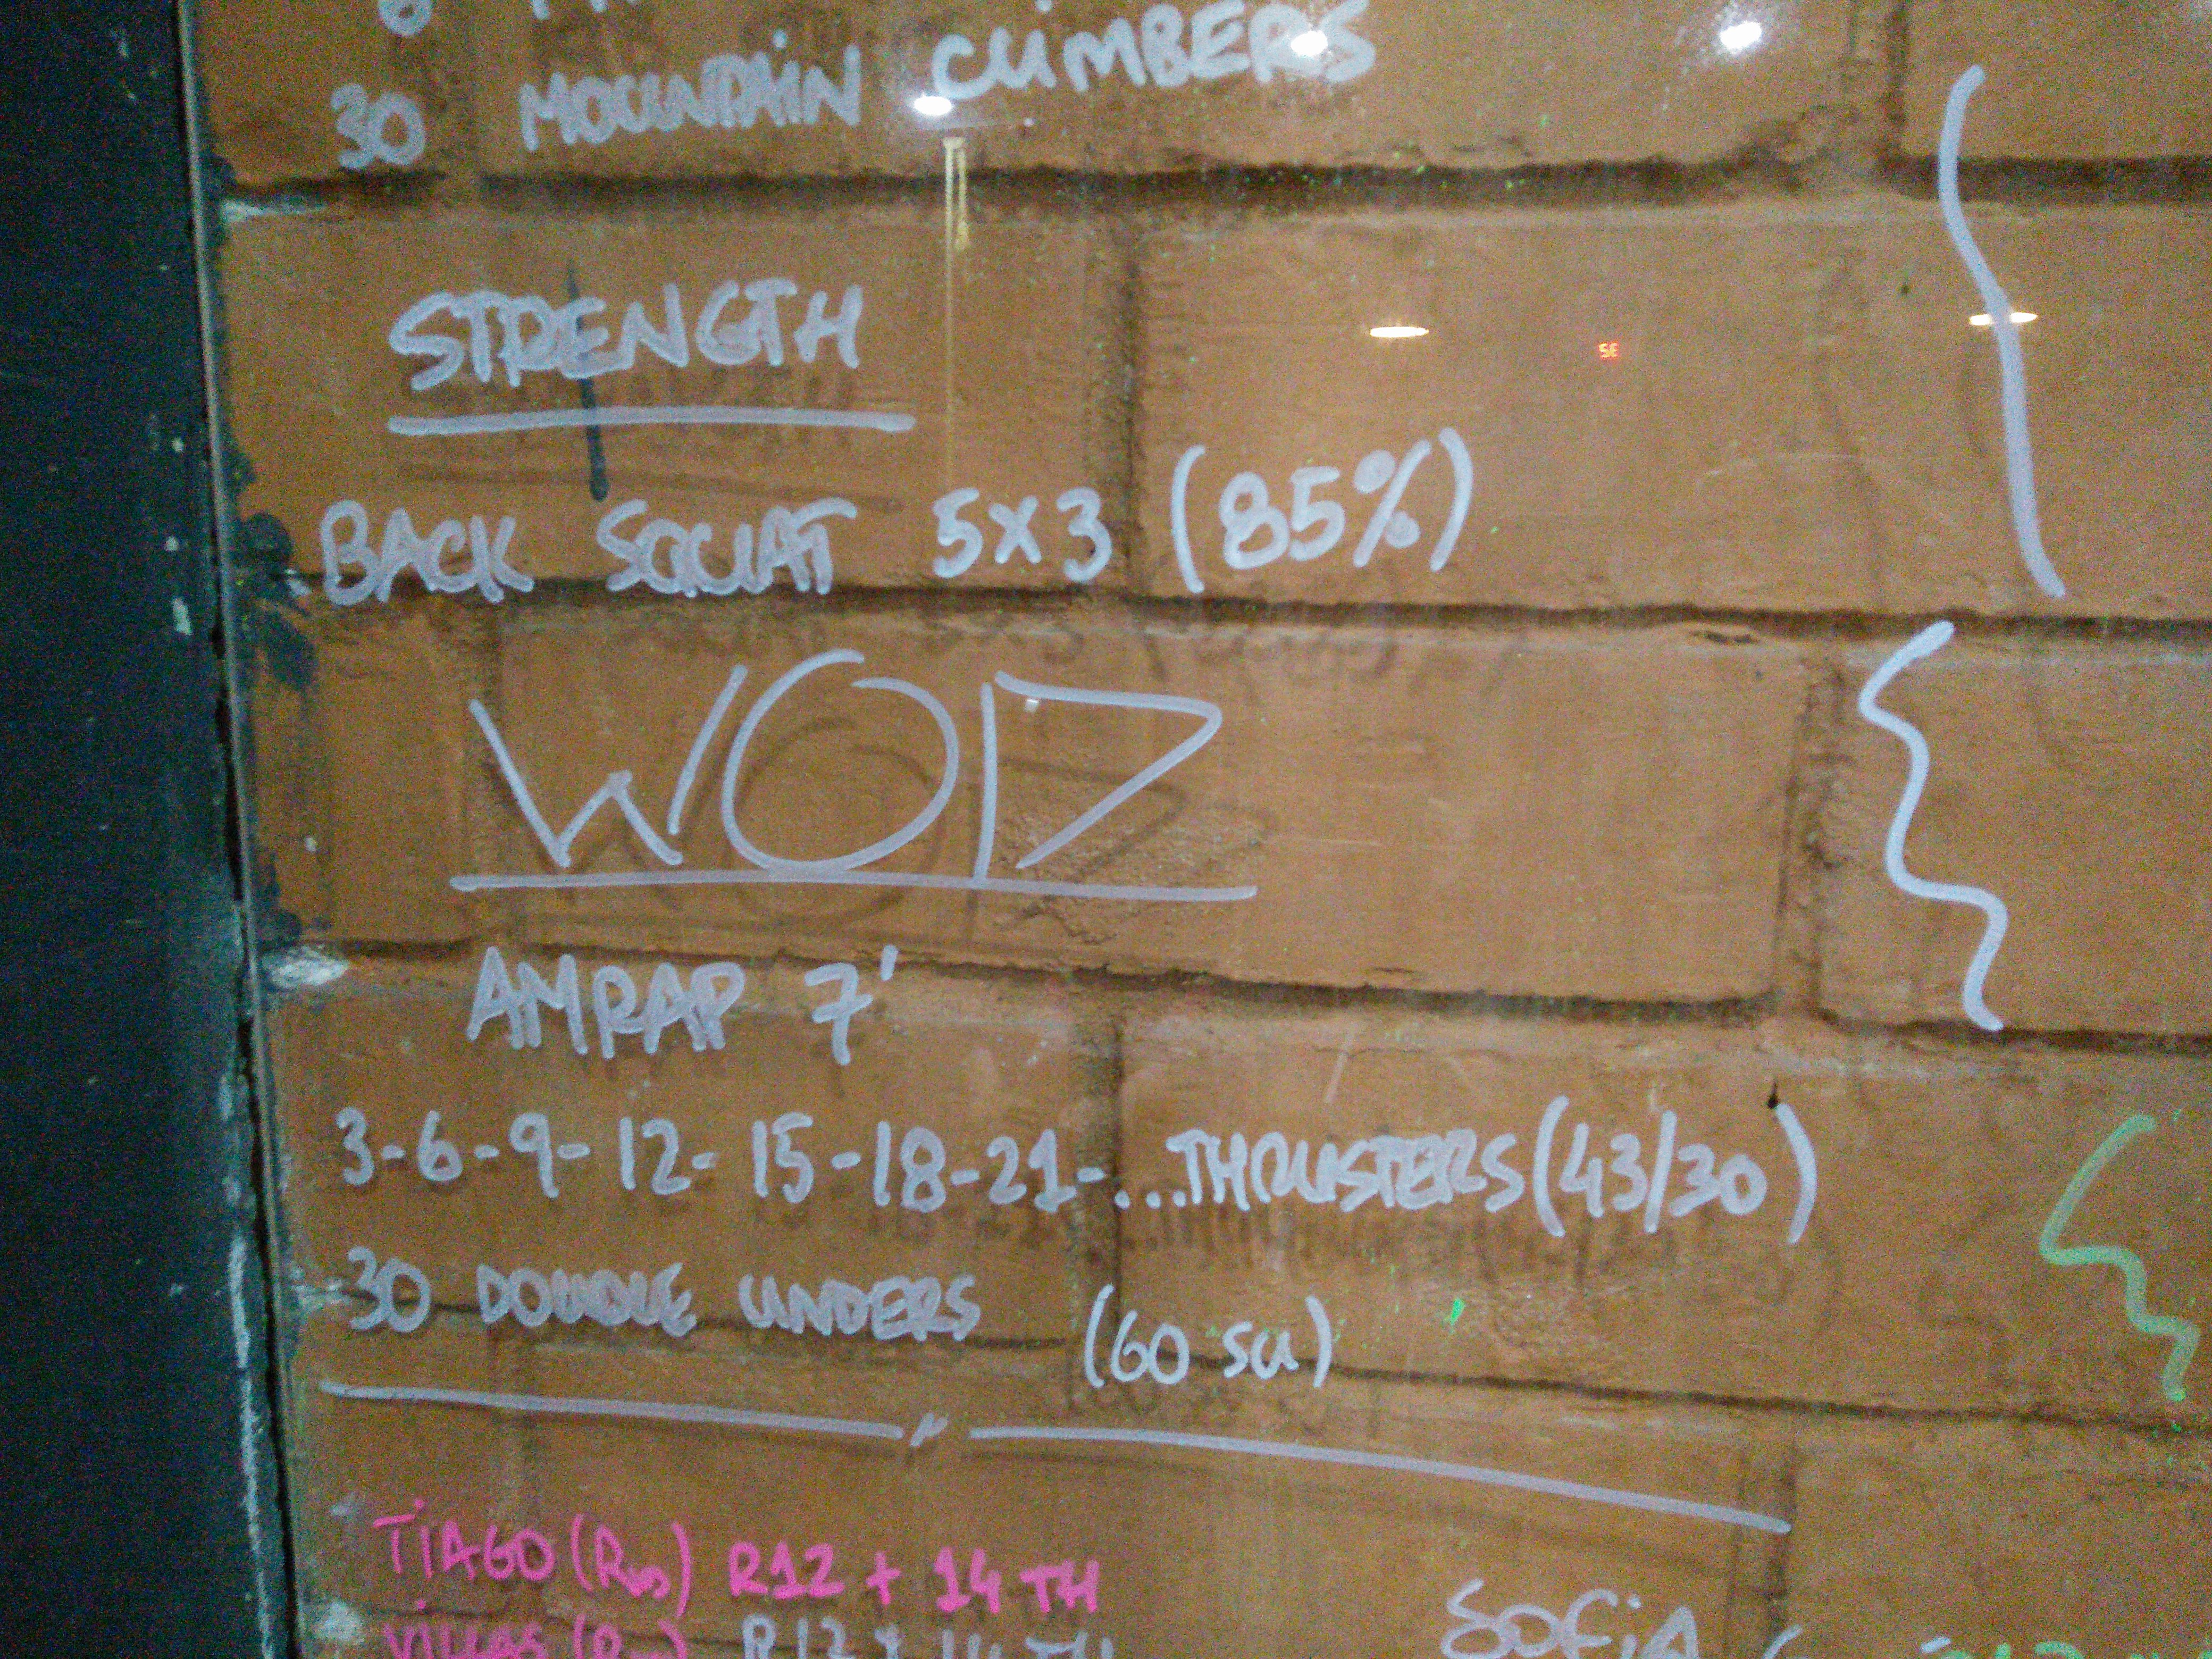 30 MOUNTAIN CLIMBERS
STRENGTH
BACK SQUAT 5x3 (85%)
WOD
AMRAP 7'
3-6-9-12-15-18-21-...THRUSTERS (43/30)
30 DOUBLE UNDERS (60 SU)
TIAGO (Rx) R12 + 14 TH
R12 + 14 TH
SOFIA